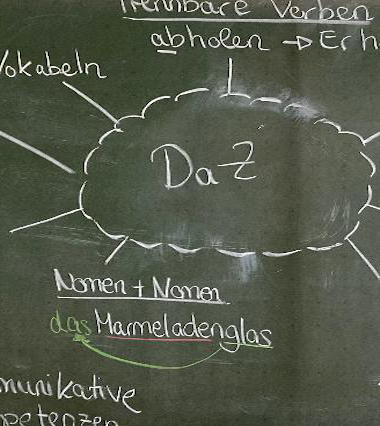 Trennbare Verben
abholen → Erh
Vokabeln
DaZ
Nomen + Nomen
das Marmeladenglas
munikative
petenzen